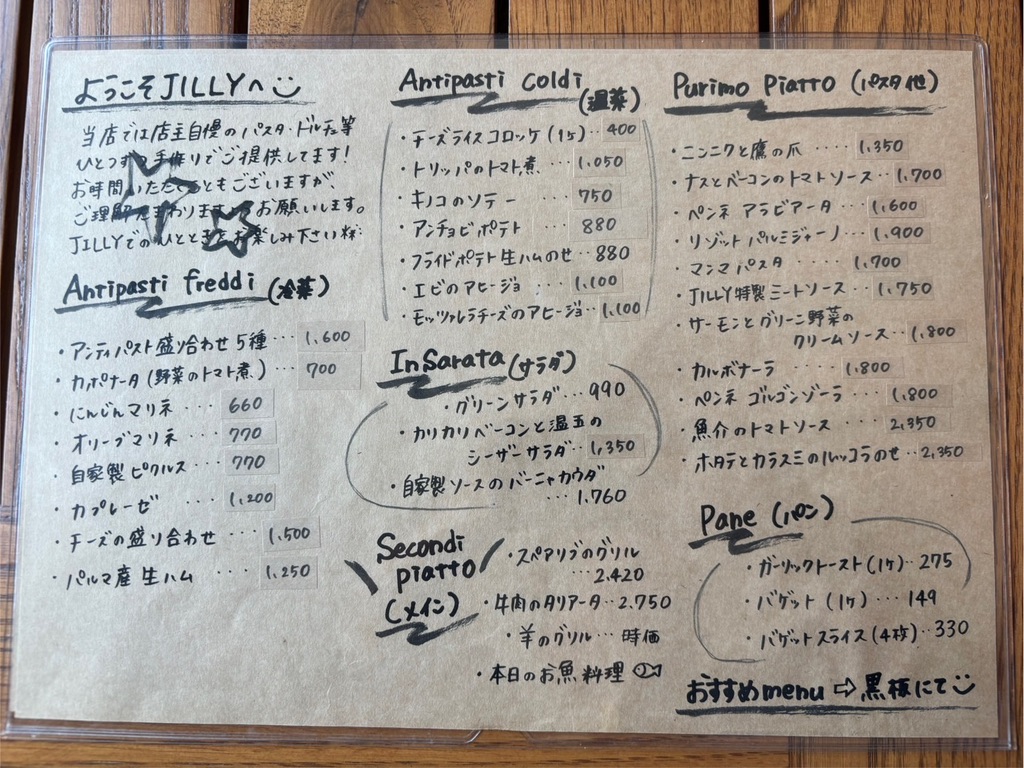 ようこそJILLYへ
当店では店主自慢のパスタ・ドルチェ等
ひとつずつ手作りでご提供してます!
お時間いただくこともございますが、
ご理解たまわりますようお願いします。
JILLYでのひとときをお楽しみ下さい
Antipasti freddi (冷菜)
・アンティパスト盛り合わせ5種・・・1,600
・カポナータ(野菜のトマト煮)・・・700
・にんじんマリネ・・・660
・オリーブマリネ・・・770
・自家製ピクルス・・・770
・カプレーゼ・・・1,200
・チーズの盛り合わせ・・・1,500
・パルマ産生ハム・・・1,250
Antipasti Coldi
(温菜)
・チーズライスコロッケ(1ヶ)・・400
・トリッパのトマト煮・・・1,050
・キノコのソテー・・・750
・アンチョビポテト 880
・フライドポテト生ハムのせ・・880
・エビのアヒージョ・・・1,100
・モッツァレラチーズのアヒージョ・・1,100
InSarata (サラダ)
・グリーンサラダ・・・990
・カリカリベーコンと温玉の
シーザーサラダ・・1,350
・自家製ソースのバーニャカウダ
・・・1,760
Secondi
piatto
(メイン)
・スペアリブのグリル
・・・2,420
・牛肉のタリアータ・・2,750
・羊のグリル・・・時価
・本日のお魚料理
Purimo Piatto (パスタ他)
・ニンニクと鷹の爪・・・・1,350
・ナスとベーコンのトマトソース・・1,700
・ペンネ アラビアータ・・1,600
・リゾット パルミジャーノ・・1,900
・マンマパスタ・・・・1,700
・JILLY特製ミートソース・・1,750
・サーモンとグリーン野菜の
クリームソース・・1,800
・カルボナーラ・・・・1,800
・ペンネ ゴルゴンゾーラ・・・1,800
・魚介のトマトソース・・・2,350
・ホタテとカラスミのルッコラのせ・・2,350
Pane (パン)
・ガーリックトースト(1ヶ)・・275
・バゲット(1ヶ)・・・149
・バゲットスライス(4枚)・・330
おすすめmenu⇨黒板にて